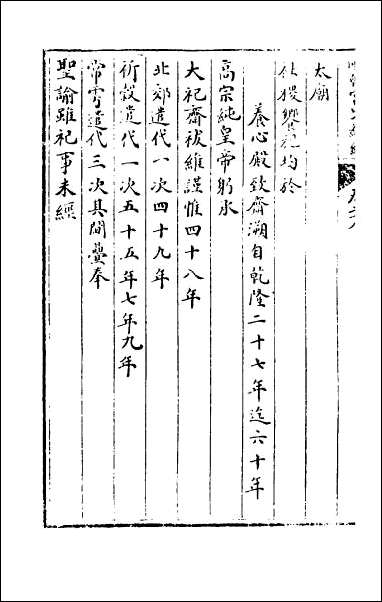 太廟
社稷饗祀均於
養心殿致齋溯自乾隆二十七年迄六十年
高宗純皇帝躬承
大祀齋祓維謹惟四十八年
北郊遣代一次四十九年
祈穀遣代一次五十五年七年九年
常雩遣代三次其間疊奉
聖諭雖祀事未經